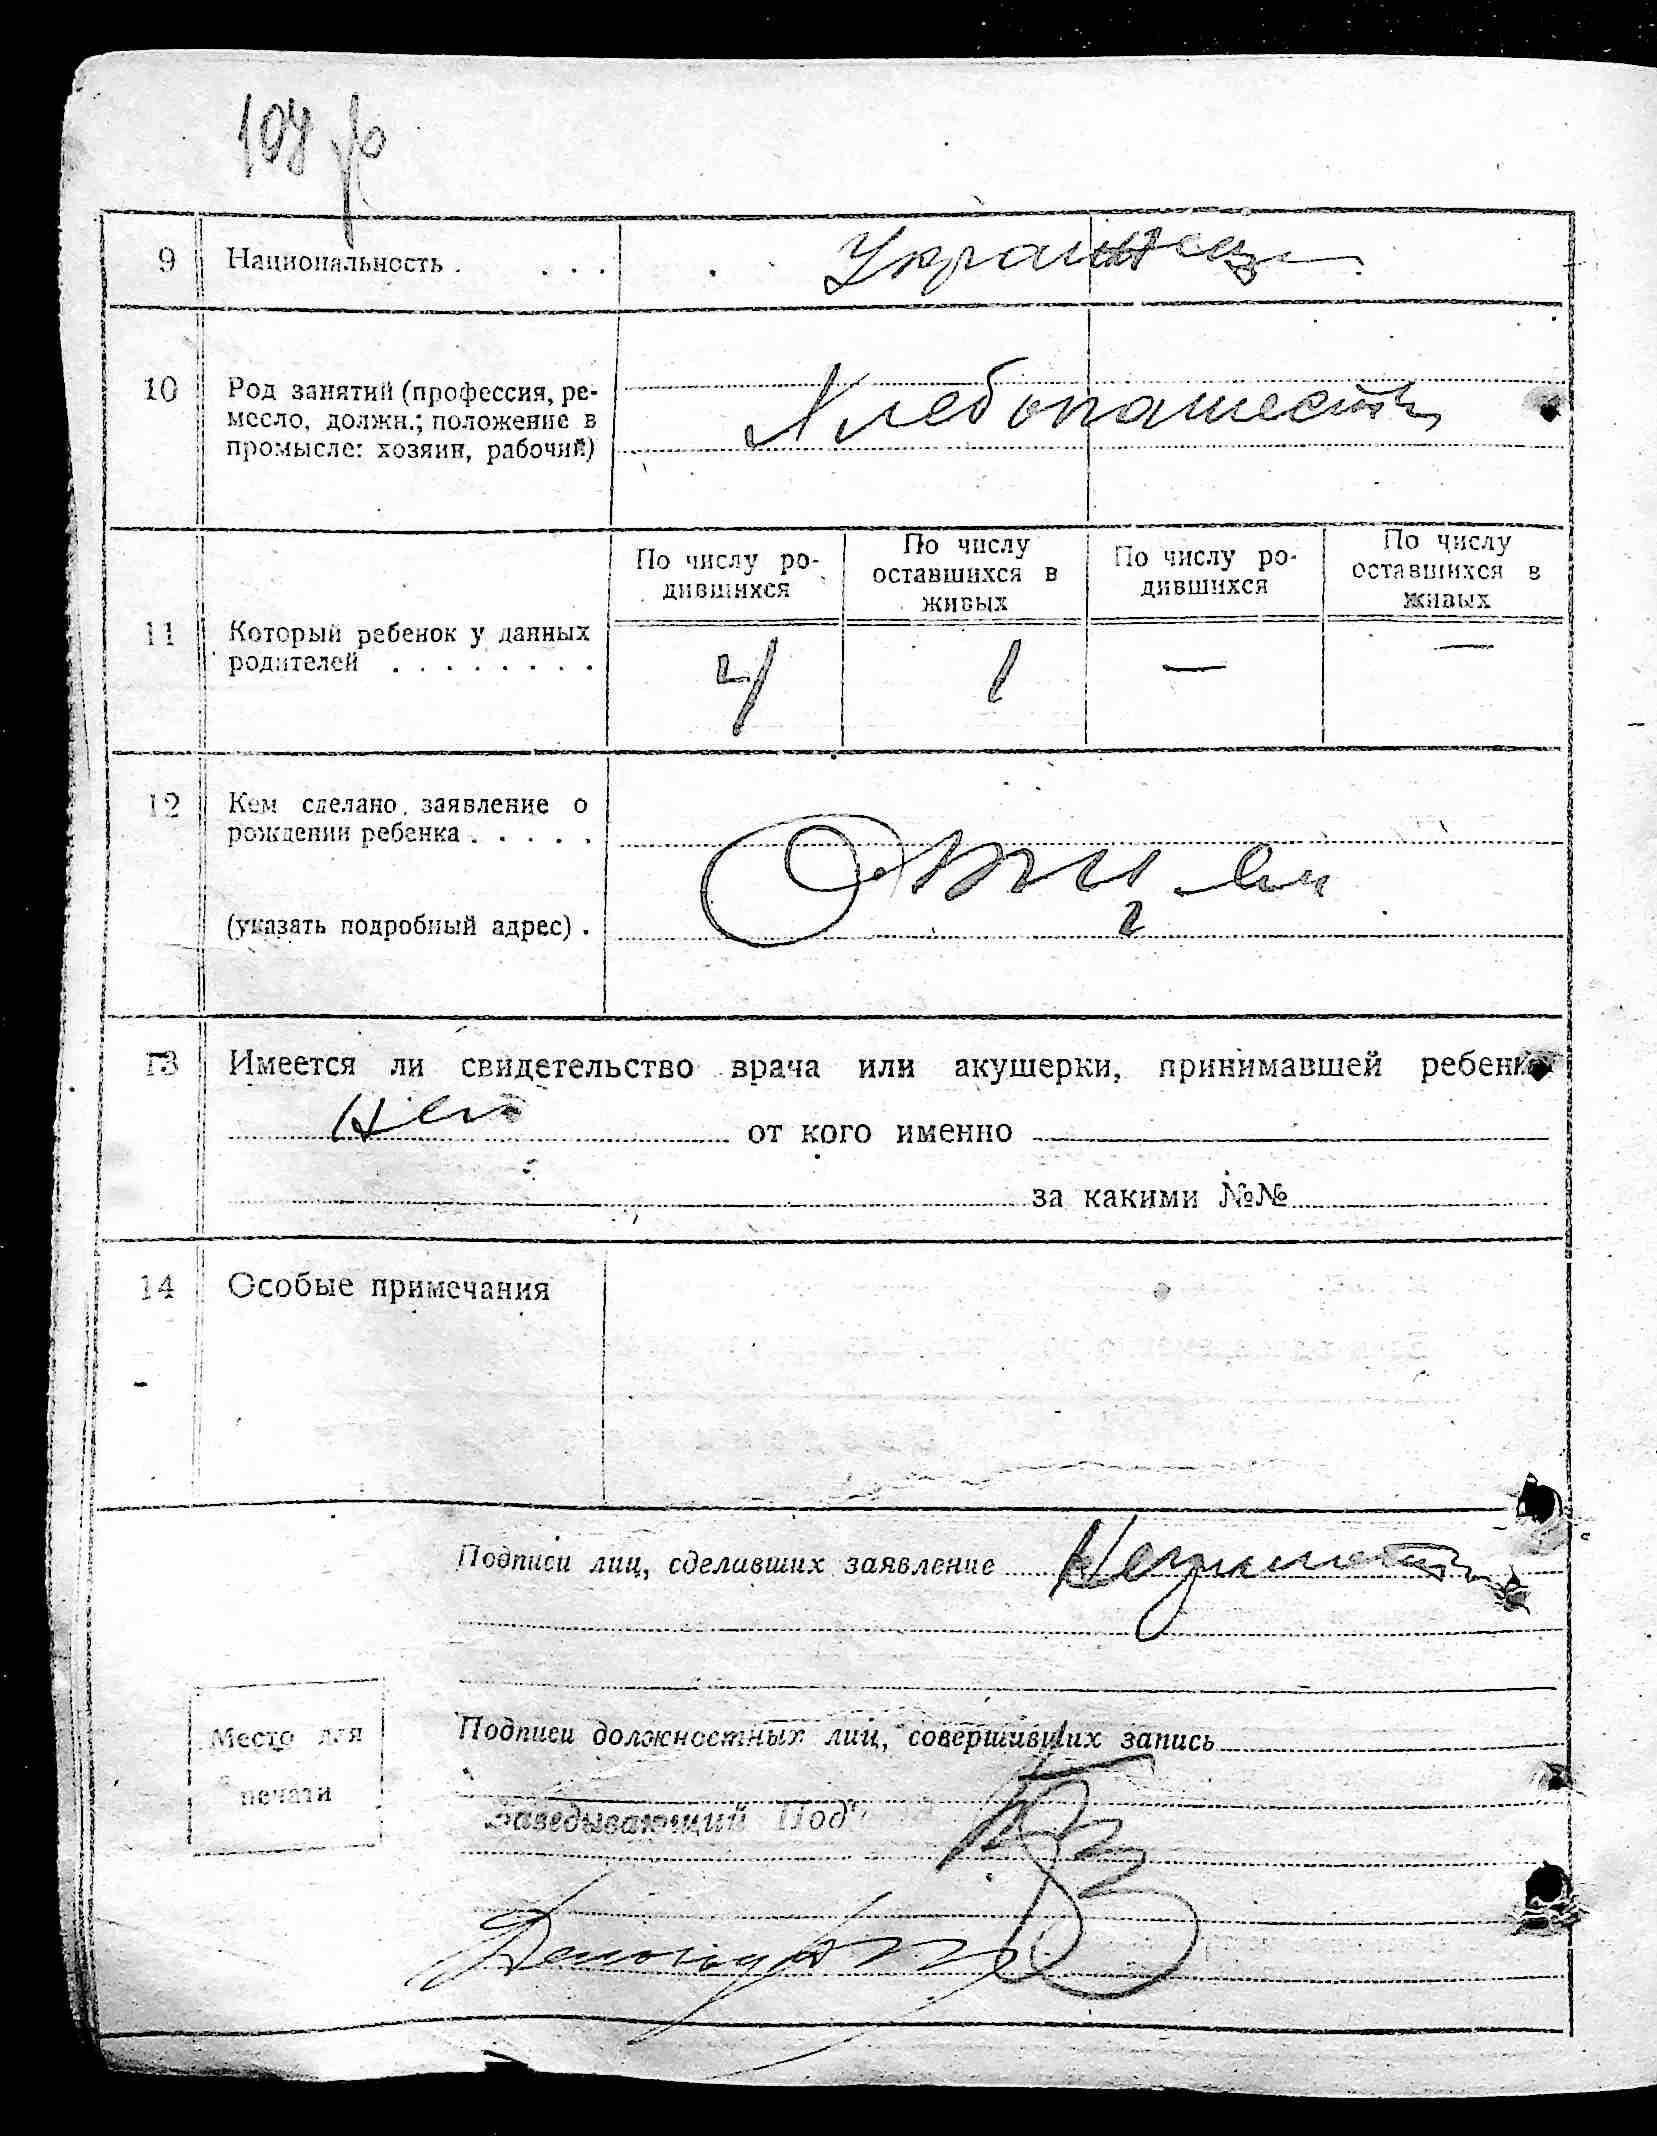 9 Национальность . . . . Украинец
10 Род занятий (профессия, ре-
месло, должн.; положение в
промысле: хозяин, рабочий)
Хлебопашест
По числу ро-
дившихся
По числу
оставшихся в
живых
По числу ро-
дившихся
По числу
оставшихся в
живых
11 Который ребенок у данных
родителей . . . . . . . .
4 1 — —
12 Кем сделано заявление о
рождении ребенка . . . . .
Отцем
(указать подробный адрес) .
13 Имеется ли свидетельство врача или акушерки, принимавшей ребенка
нет от кого именно
за какими №№
14 Особые примечания
Подписи лиц, сделавших заявление
Место для
печати
Подписи должностных лиц, совершивших запись
Заведывающий Под